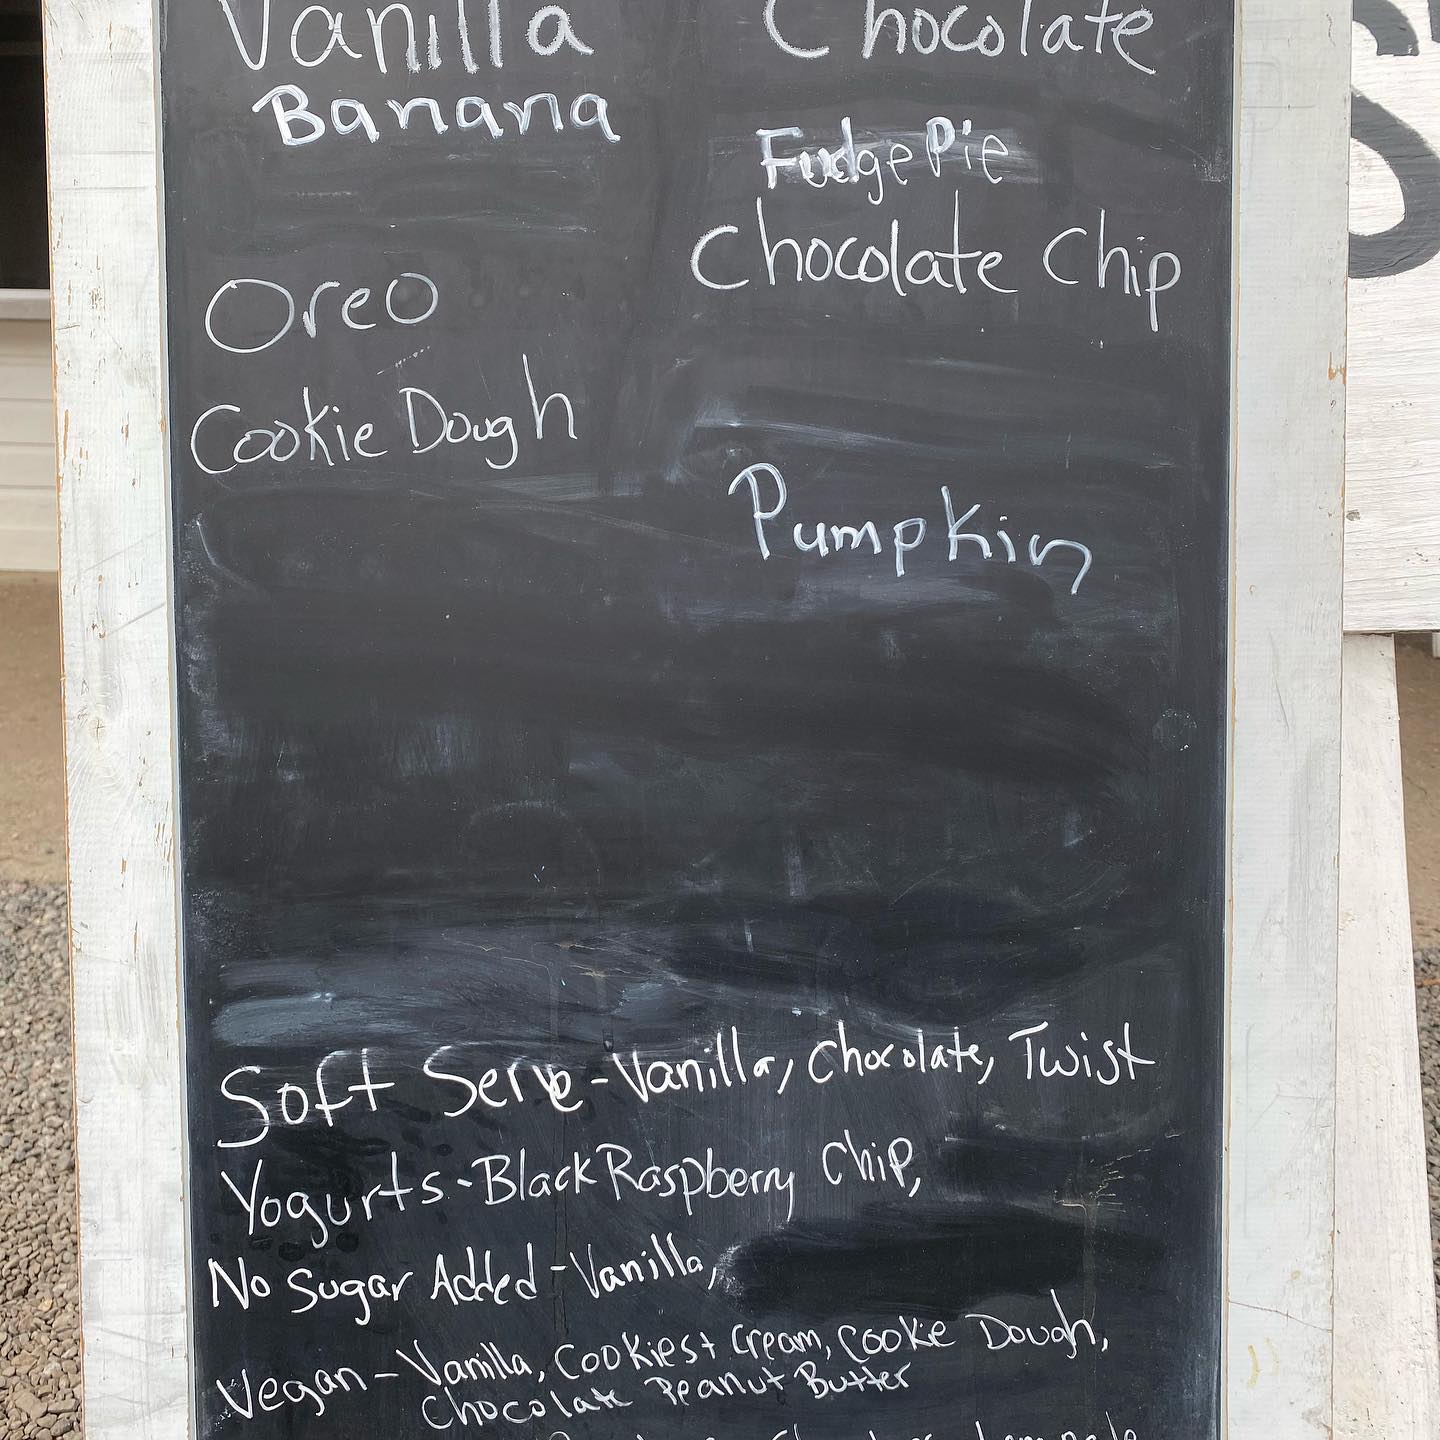 Vanilla
Chocolate
Banana
Fudge Pie
Chocolate Chip
Oreo
Cookie Dough
Pumpkin
Soft Serve - Vanilla, Chocolate, Twist
Yogurts - Black Raspberry Chip,
No Sugar Added - Vanilla,
Vegan - Vanilla, Cookies + Cream, Cookie Dough,
Chocolate Peanut Butter